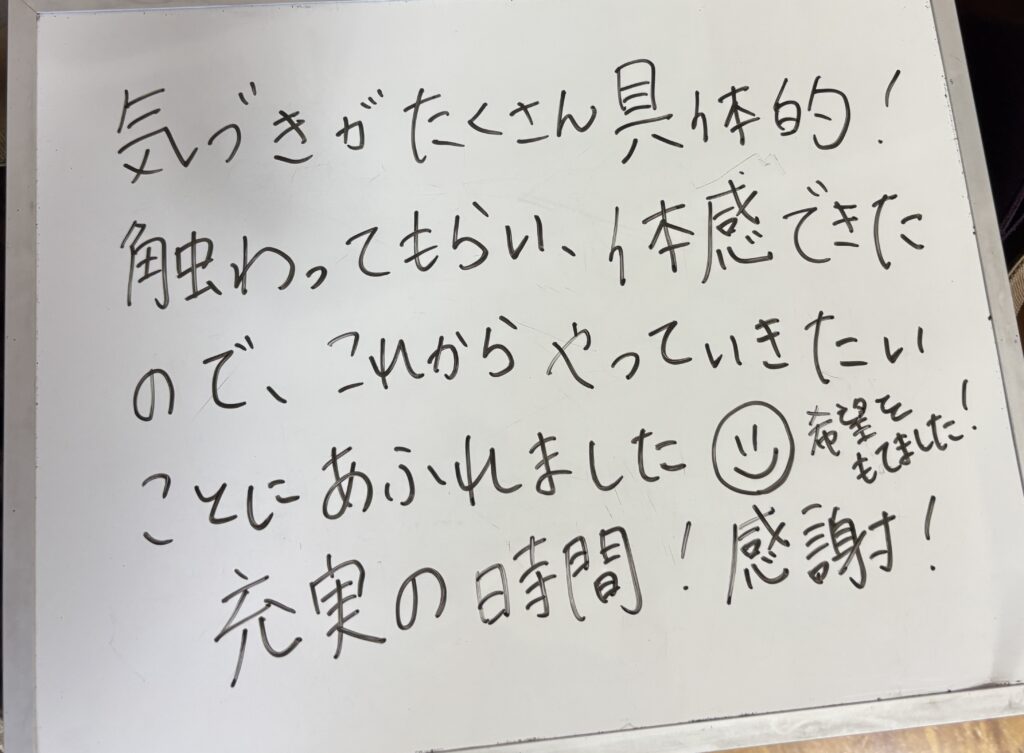 気づきがたくさん具体的！
触わってもらい、体感できた
ので、これからやっていきたい
ことにあふれました
希望を
もてました！
充実の時間！感謝！